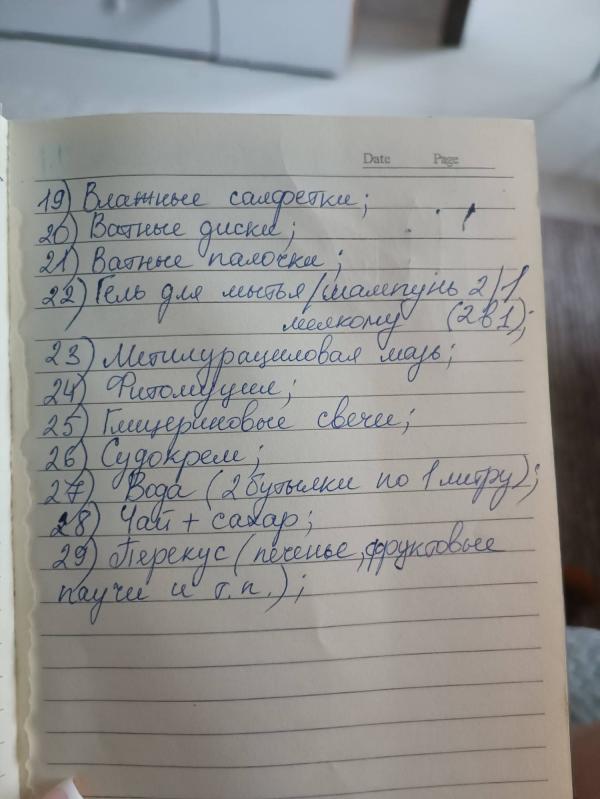 Date Page
19) Влажные салфетки;
20) Ватные диски;
21) Ватные палочки;
22) Гель для мытья/шампунь 2/1
мелкому (2в1);
23) Метилурациловая мазь;
24) Фитомуцил;
25) Глицериновые свечи;
26) Судокрем;
27) Вода (2 бутылки по 1 литру);
28) Чай + сахар;
29) Перекус (печенье, фруктовые
паучи и т.п.);